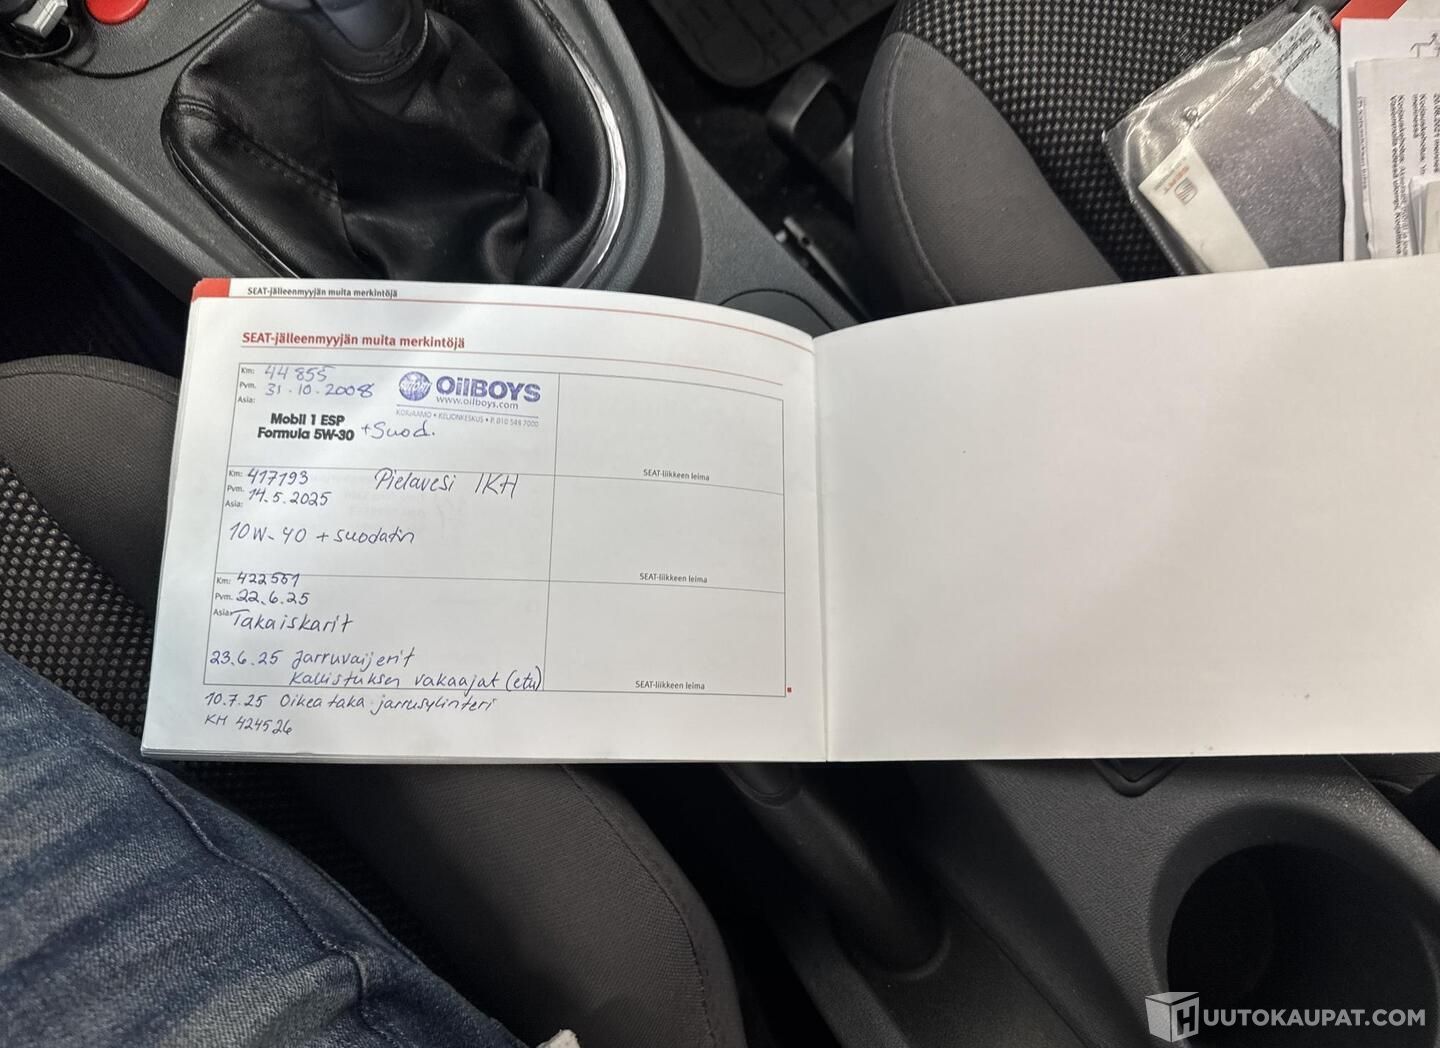 SEAT-jälleenmyyjän muita merkintöjä
SEAT-jälleenmyyjän muita merkintöjä
Km: 44 855
Pvm. 31.10.2008
Asia:
OilBOYS
www.oilboys.com
KORJAAMO • KELJONKESKUS • P. 010 548 7000
Mobil 1 ESP
Formula 5W-30 + Suod.
SEAT-liikkeen leima
Km: 417193 Pielavesi IKH
Pvm. 14.5.2025
Asia:
10W-40 + suodatin
SEAT-liikkeen leima
Km: 422551
Pvm. 22.6.25
Asia: Takaiskarit
23.6.25 Jarruvaijerit
Kallistuksen vakaajat (etu)
SEAT-liikkeen leima
10.7.25 Oikea taka jarrusylinteri
KM 424526
SEAT
HUUTOKAUPAT.COM